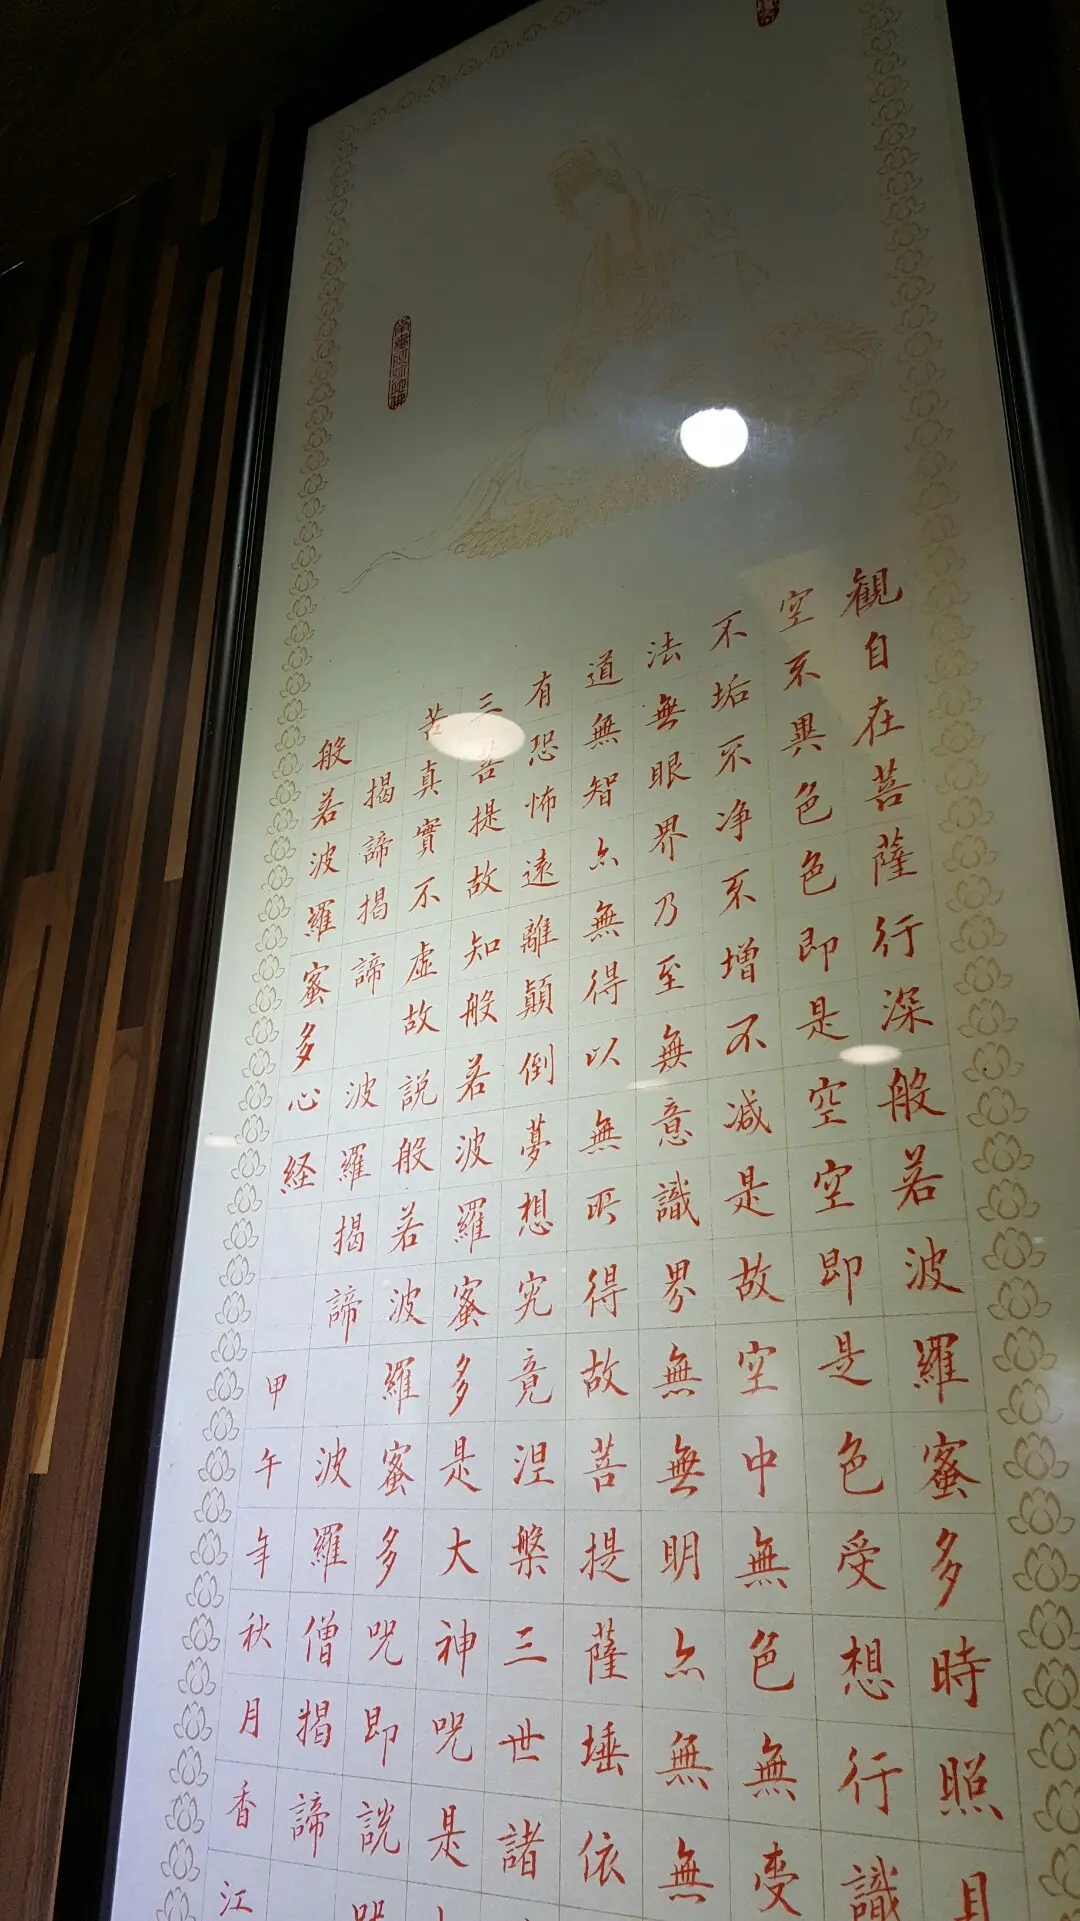 観自在菩薩行深般若波羅蜜多時照見
空不異色色即是空空即是色受想行識
不垢不净不增不减是故空中無色無受
法無眼界乃至無意識界無無明亦無無
道無智亦無得以無所得故菩提薩埵依
有恐怖遠離顛倒夢想究竟涅槃三世諸
三菩提故知般若波羅蜜多是大神咒是
苦真實不虛故説般若波羅蜜多咒即説咒
揭諦揭諦 波羅揭諦 波羅僧揭諦
般若波羅蜜多心経 甲午年秋月香江
南無阿弥陀佛